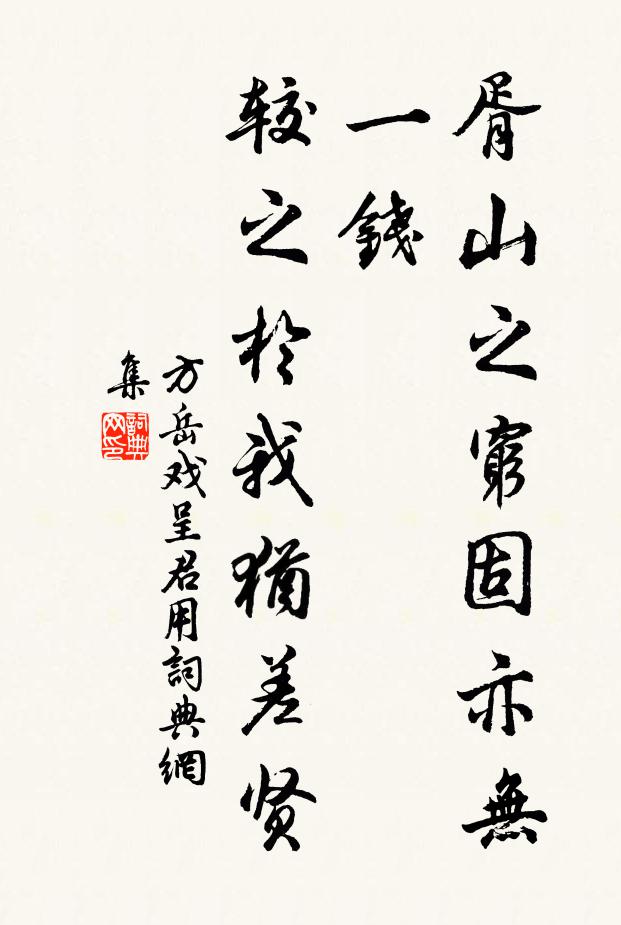 胥山之窮固亦無
一錢
较之於我猶差贤
方岳戏呈君用詞典網
集
詞典网印